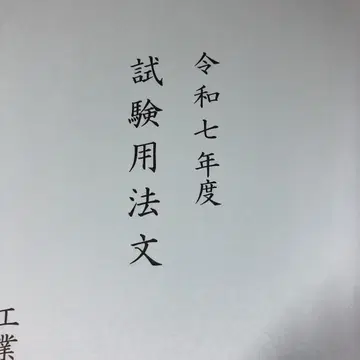 令和七年度
試験用法文
工業